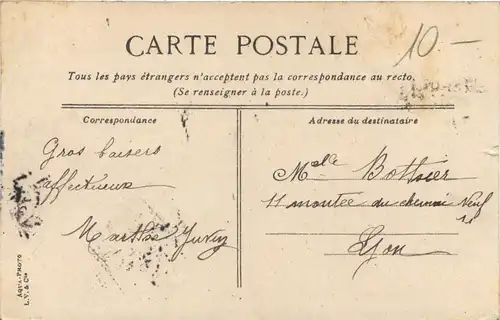 CARTE POSTALE
10 —
Tous les pays étrangers n'acceptent pas la correspondance au recto.
(Se renseigner à la poste.)
Correspondance
Gros baisers
affectueux
Marthe
AQUA-PHOTO
L. V. & Cie
Adresse du destinataire
Melle Bottier
11 montée du chemin Neuf
Lyon